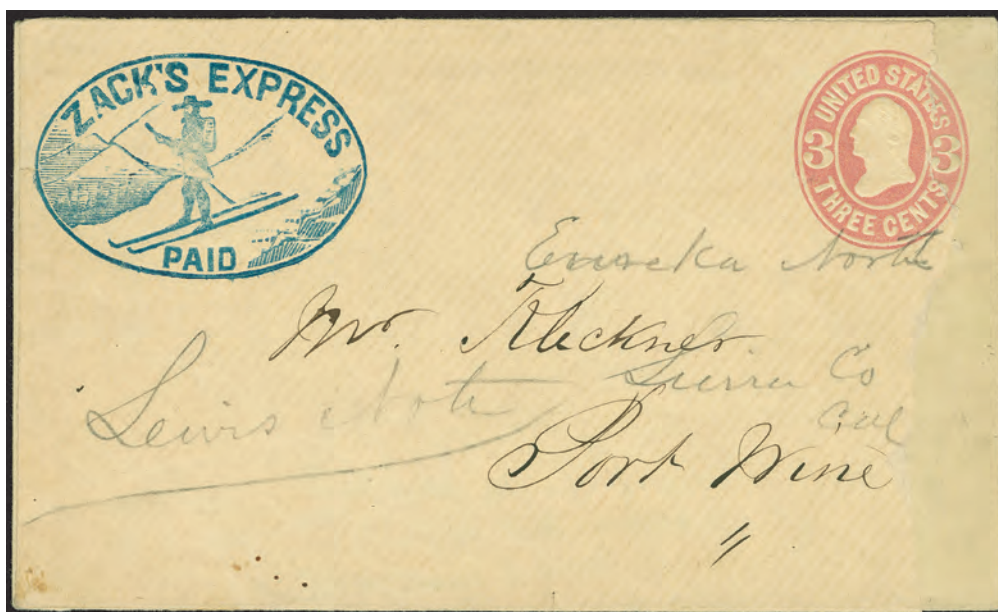 ZACK'S EXPRESS
PAID
UNITED STATES
3 3
THREE CENTS
Eureka North
Mr. Kleckner
Sierra Co
Cal
Lewis Note
Port Wine
"